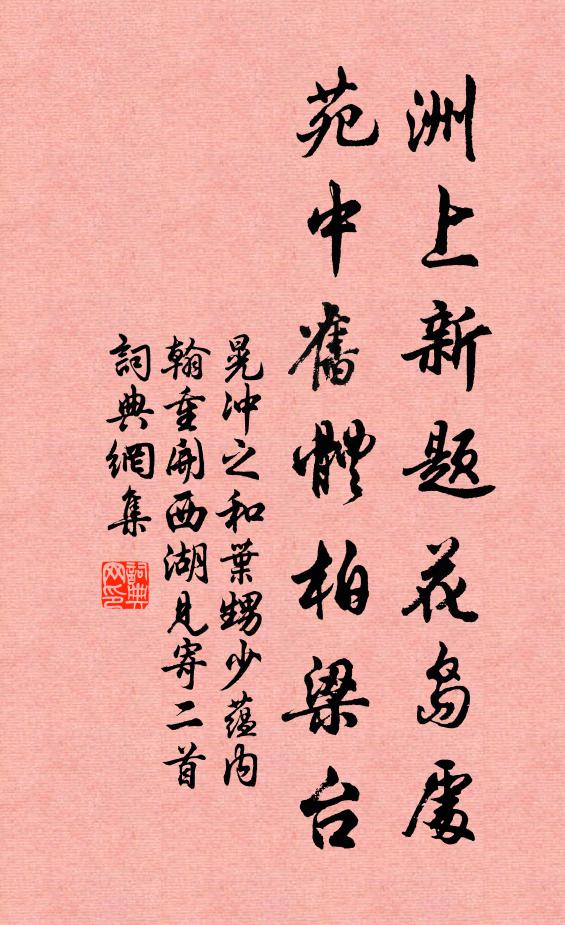 洲上新题花岛处
苑中舊體柏梁台
晃冲之和葉甥少蕴内
翰重開西湖見寄二首
詞典網集
詞典
网印